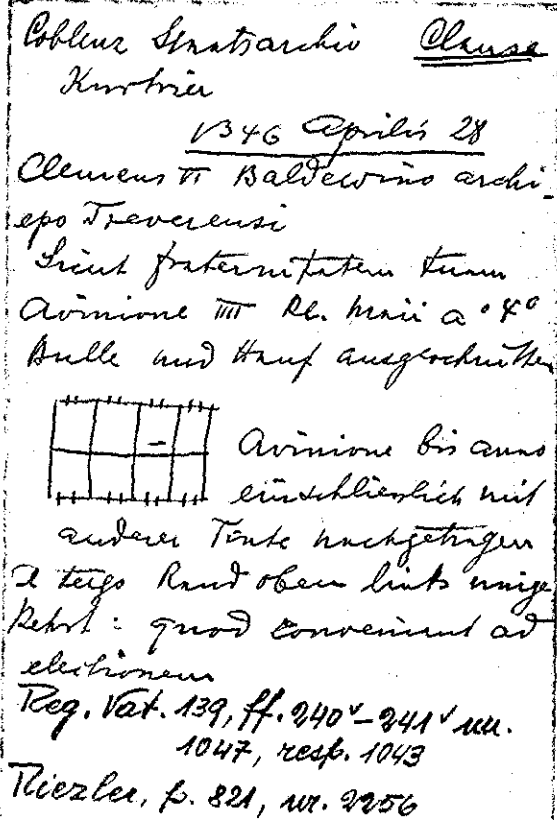 Coblenz Staatsarchiv Clause
Kurtrier
1346 Aprilis 28
Clemens VI Baldewino archi-
epo Treverensi
Sicut fraternitatem tuam
Avinione IIII Kl. Maii a° 4°
Bulle und Hanf ausgeschnitten
Avinione bis anno
einschliesslich mit
anderer Tinte nachgetragen
A tergo Rand oben links umge
kehrt: quod conveniunt ad
electionem
Reg. Vat. 139, ff. 240v-241v nr.
1047, resp. 1043
Riezler, p. 821, nr. 2256